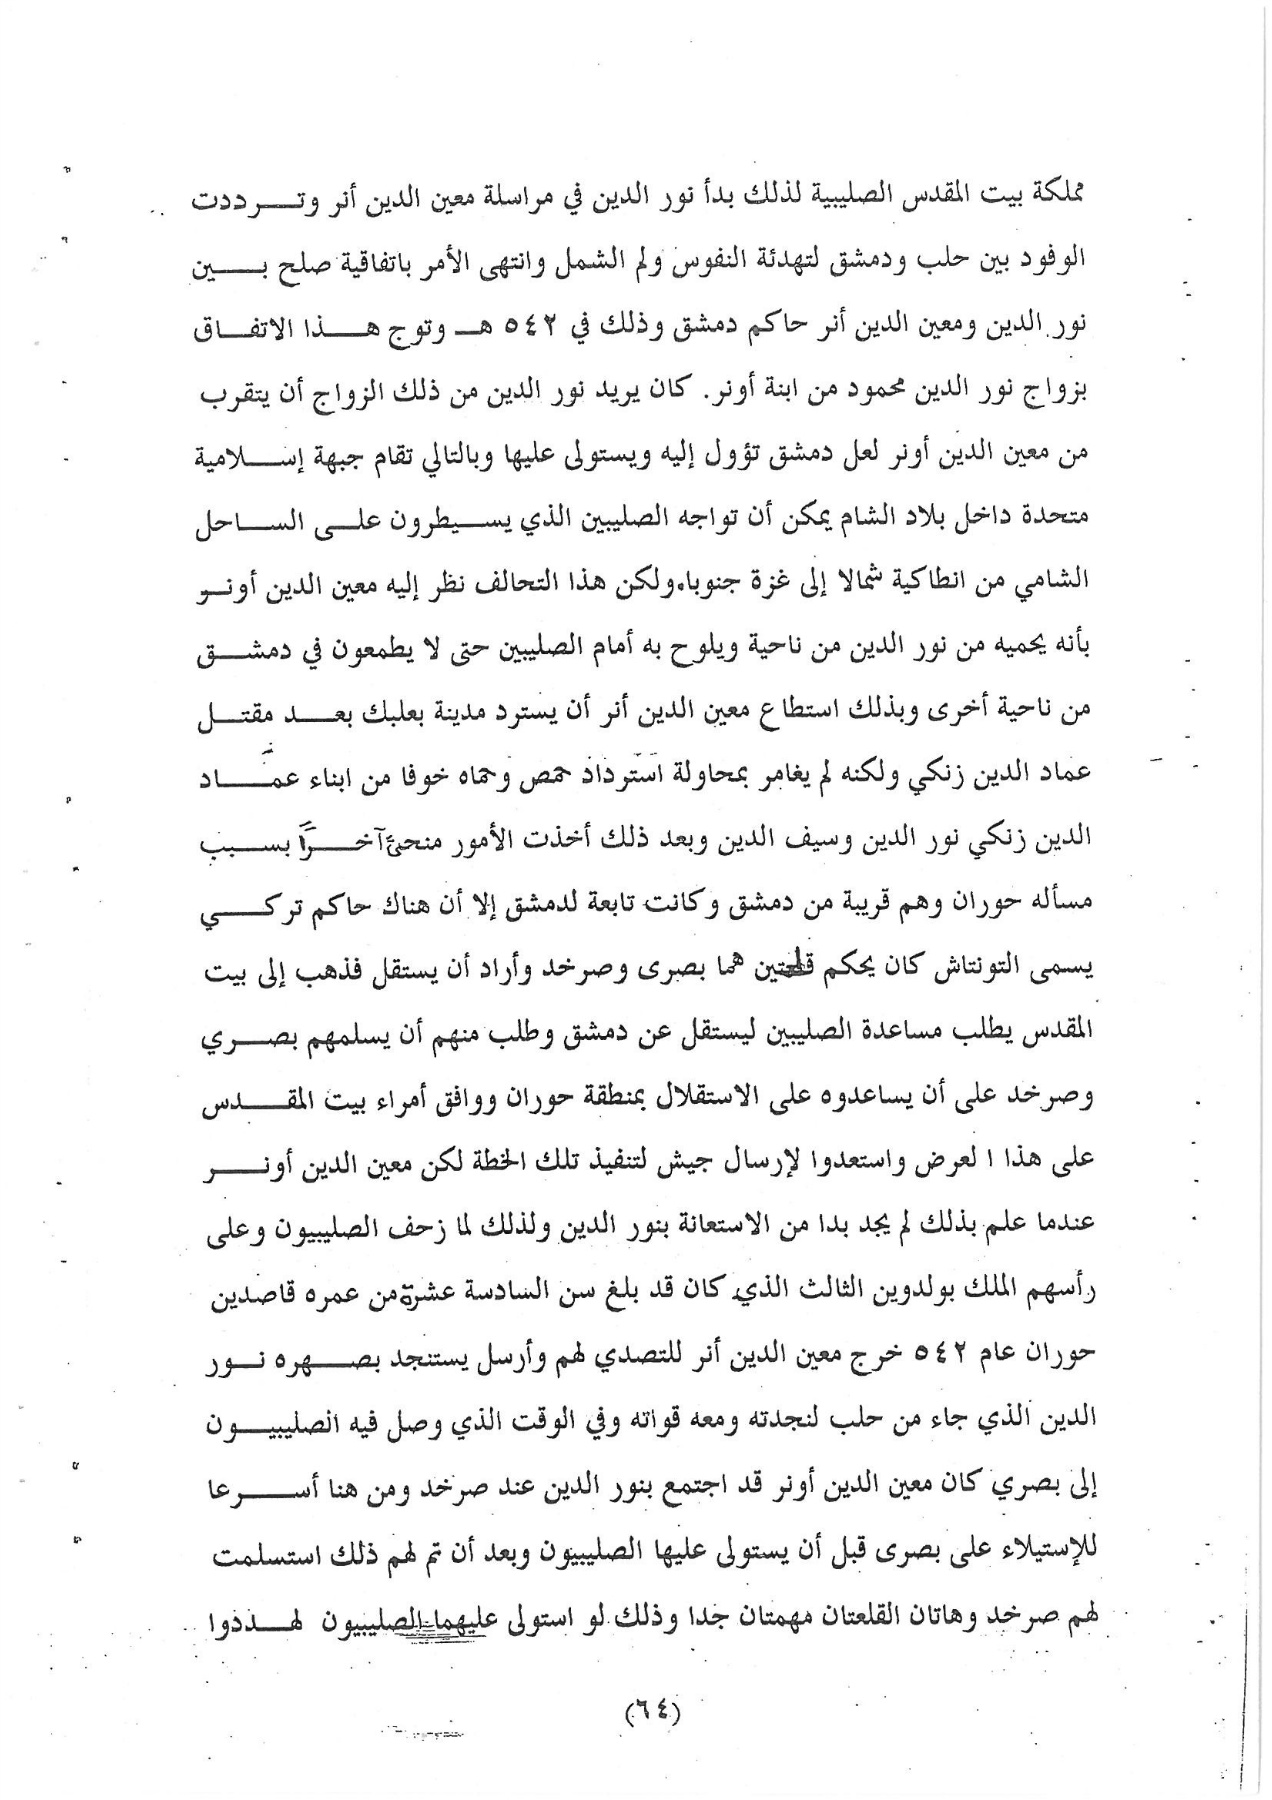 مملكة بيت المقدس الصليبية لذلك بدأ نور الدين في مراسلة معين الدين أنر وترددت
الوفود بين حلب ودمشق لتهدئة النفوس ولم الشمل وانتهى الأمر باتفاقية صلح بين
نور الدين ومعين الدين أنر حاكم دمشق وذلك في ٥٤٢ هـ وتوج هذا الاتفاق
بزواج نور الدين محمود من ابنة أونر. كان يريد نور الدين من ذلك الزواج أن يتقرب
من معين الدين أونر لعل دمشق تؤول إليه ويستولى عليها وبالتالي تقام جبهة إسلامية
متحدة داخل بلاد الشام يمكن أن تواجه الصليبين الذي يسيطرون على الساحل
الشامي من انطاكية شمالا إلى غزة جنوبا.ولكن هذا التحالف نظر إليه معين الدين أونو
بأنه يحميه من نور الدين من ناحية ويلوح به أمام الصليبين حتى لا يطمعون في دمشق
من ناحية أخرى وبذلك استطاع معين الدين أنر أن يسترد مدينة بعلبك بعد مقتل
عماد الدين زنكي ولكنه لم يغامر بمحاولة استرداد حمص وحماه خوفا من ابناء عماد
الدين زنكي نور الدين وسيف الدين وبعد ذلك أخذت الأمور منحىً آخراً بسبب
مسأله حوران وهم قريبة من دمشق وكانت تابعة لدمشق إلا أن هناك حاكم تركي
يسمى التونتاش كان يحكم قلعتين هما بصرى وصرخد وأراد أن يستقل فذهب إلى بيت
المقدس يطلب مساعدة الصليبين ليستقل عن دمشق وطلب منهم أن يسلمهم بصري
وصرخد على أن يساعدوه على الاستقلال بمنطقة حوران ووافق أمراء بيت المقدس
على هذا ا لعرض واستعدوا لإرسال جيش لتنفيذ تلك الخطة لكن معين الدين أونر
عندما علم بذلك لم يجد بدا من الاستعانة بنور الدين ولذلك لما زحف الصليبيون وعلى
رأسهم الملك بولدوين الثالث الذي كان قد بلغ سن السادسة عشرة من عمره قاصدين
حوران عام ٥٤٢ خرج معين الدين أنر للتصدي لهم وأرسل يستنجد بصهره نور
الدين الذي جاء من حلب لنجدته ومعه قواته وفي الوقت الذي وصل فيه الصليبيون
إلى بصري كان معين الدين أونر قد اجتمع بنور الدين عند صرخد ومن هنا أسرعا
للإستيلاء على بصرى قبل أن يستولى عليها الصليبيون وبعد أن تم لهم ذلك استسلمت
لهم صرخد وهاتان القلعتان مهمتان جدا وذلك لو استولى عليهما الصليبيون لهددوا
(٦٤)